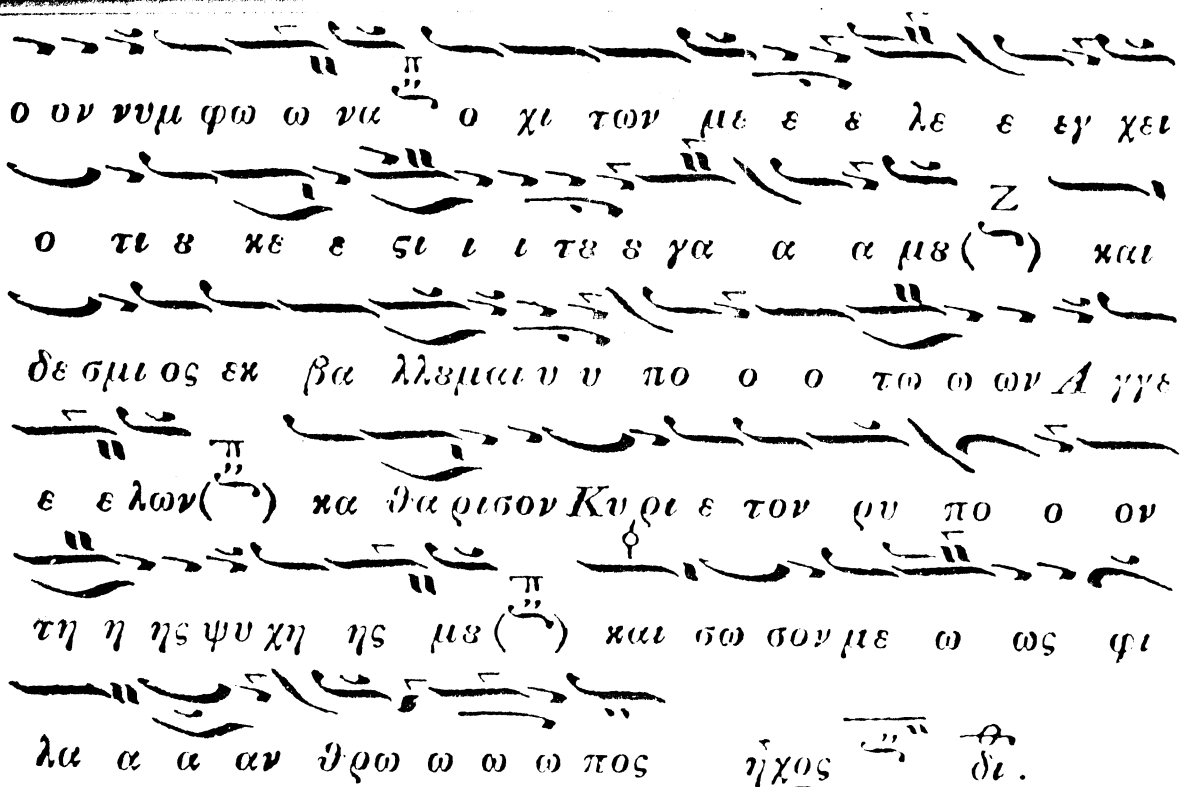 ο ον νυμ φω ω να ο χι των με ε ε λε ε εγ χει
ο τι ȣ κε ε ϛι ι ι τȣ ȣ γα α α μȣ ( ) και
δε σμι ος εκ βα λλȣμαι υ υ πο ο ο τω ω ων Α γγε
ε ε λων ( ) κα θα ρισον Κυ ρι ε τον ρυ πο ο ον
τη η ης ψυ χη ης μȣ ( ) και σω σον με ω ως φι
λα α α αν θρω ω ω ω πος ἦχος δι .